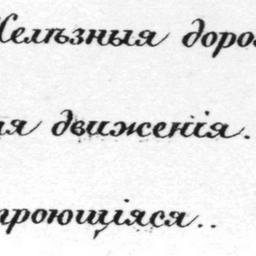 Желѣзныя доро
ія движенія.
троющіяся..